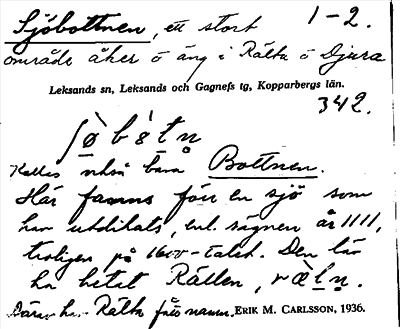 Sjöbottnen, ett stort 1-2.
område åker o äng i Rälta o Djura
Leksands sn, Leksands och Gagnefs tg, Kopparbergs län.
342.
Kallas också bara Bottnen.
Här fanns förr en sjö som
har utdikats, enl. sägnen år 1111,
troligen på 1600-talet. Den lär
ha hetat Rällen,
Därav har Rälta fått namn. ERIK M. CARLSSON, 1936.